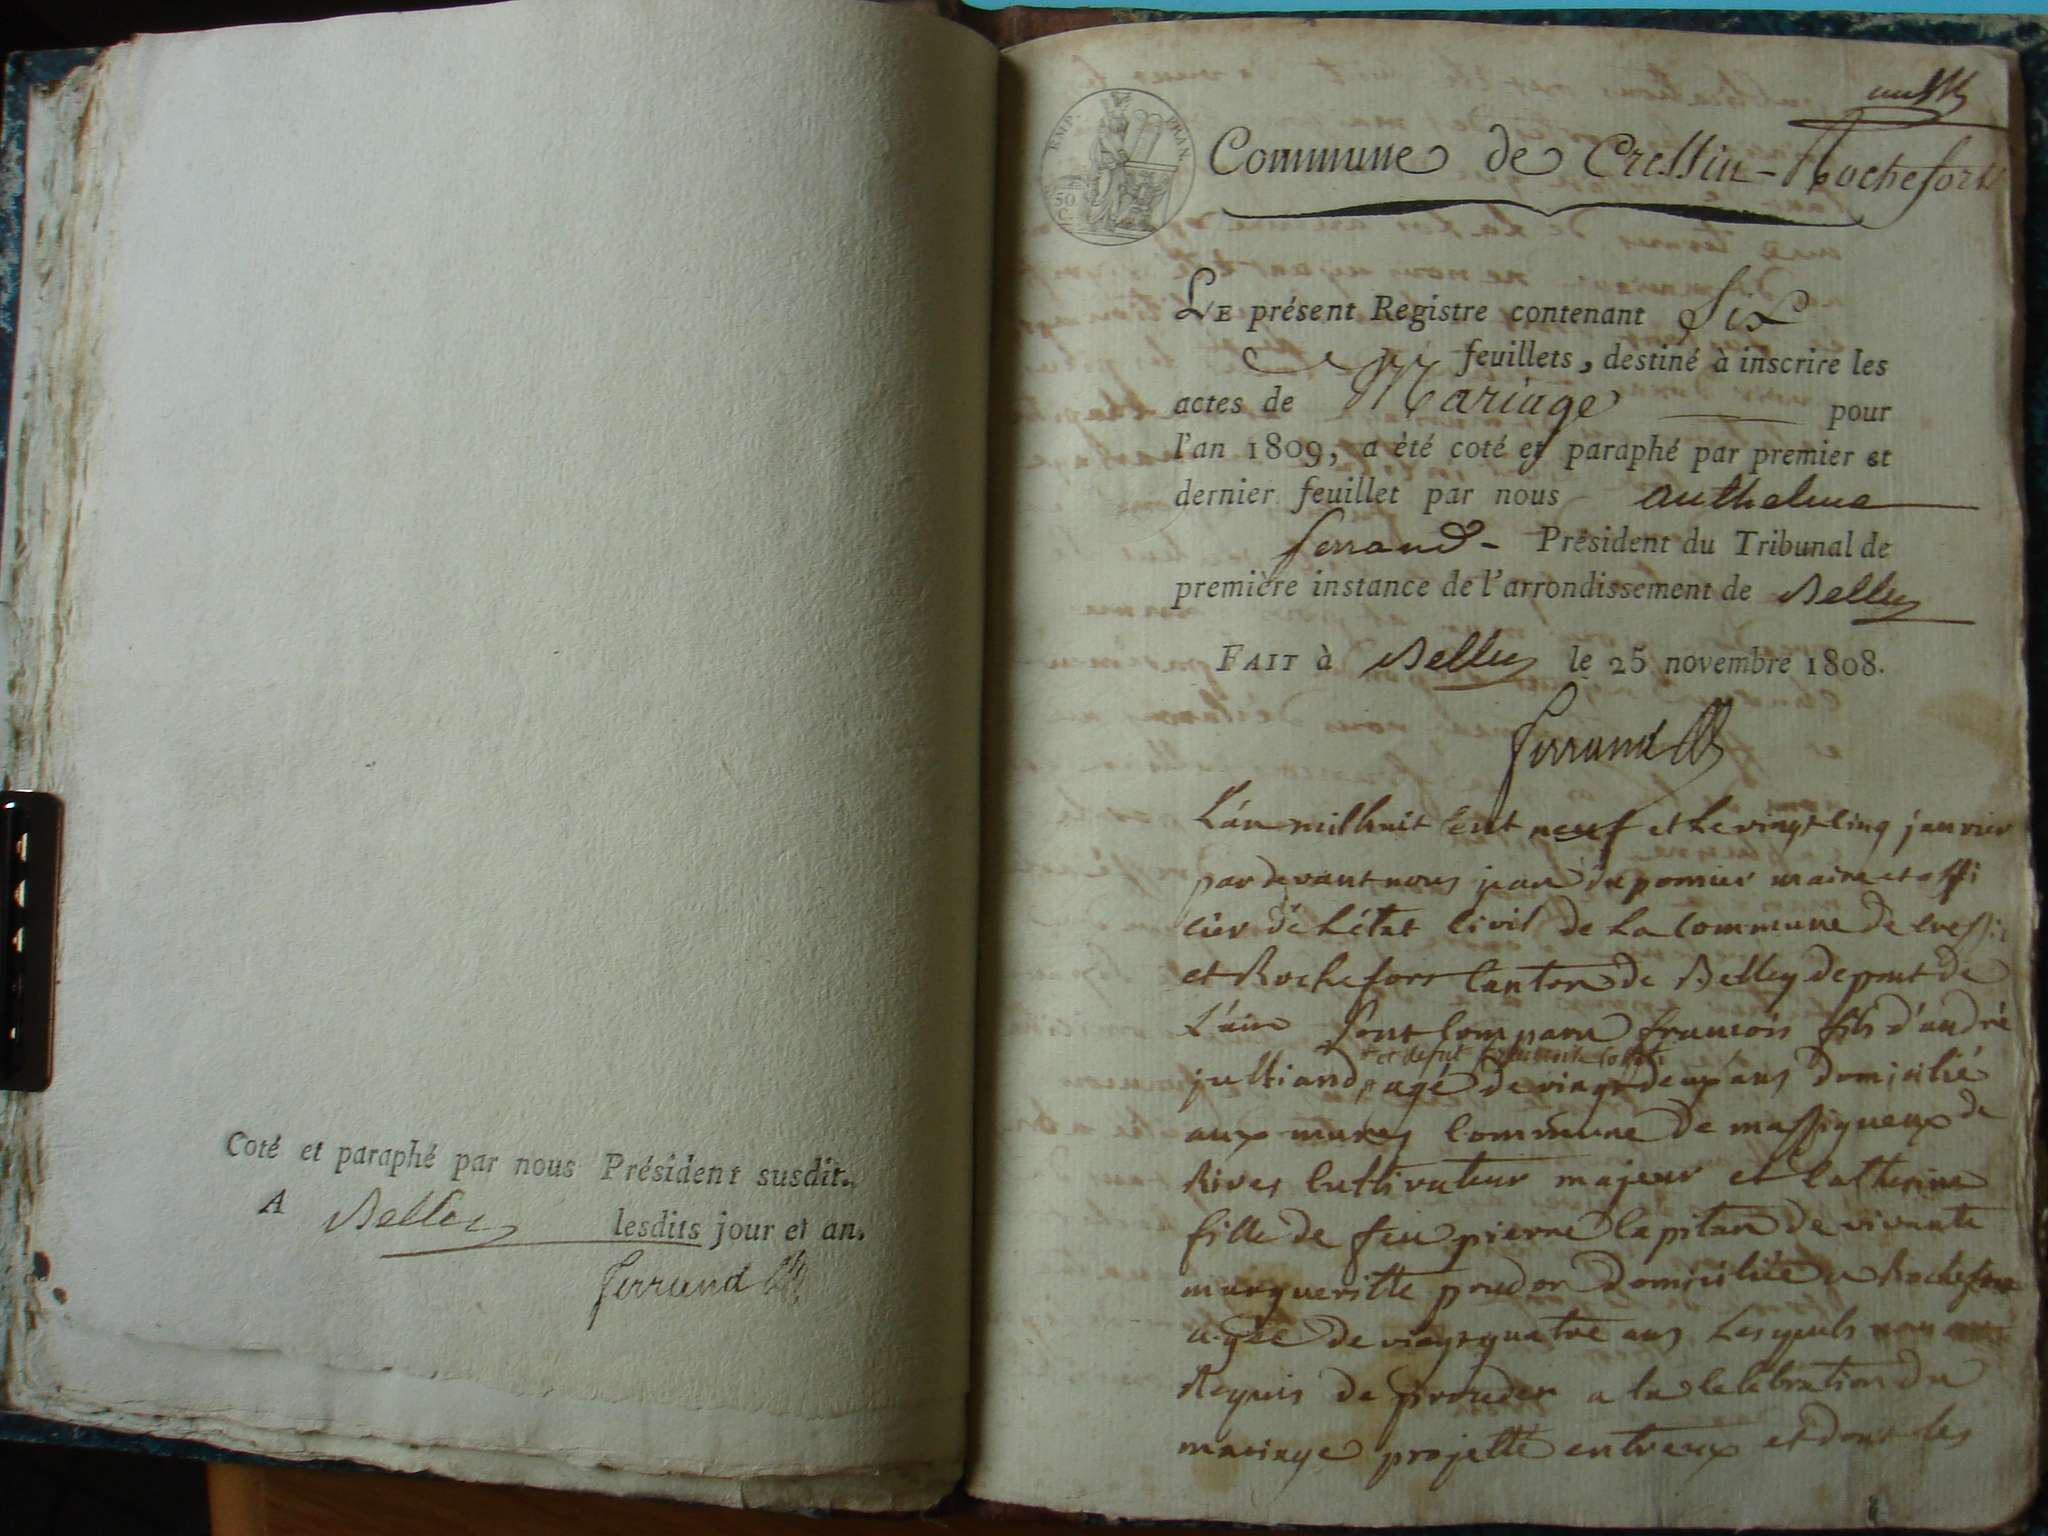 Coté et paraphé par nous Président susdit.
A Belley lesdits jour et an.
Ferrand
EMP. FRAN.
50 C.
Commune de Cressin-Rochefort
LE présent Registre contenant Six
feuillets, destiné à inscrire les
actes de Mariage pour
l'an 1809, a été coté et paraphé par premier et
dernier feuillet par nous anthelme
ferrand - Président du Tribunal de
première instance de l'arrondissement de Belley
FAIT à Belley le 25 novembre 1808.
Ferrand
L'an mil huit cent neuf et le vingt cinq janvier
par devant nous jean duponnier maire et offi
cier de L'état Civil de La Commune de Cressin
et Rochefort Canton de Belley depmt de
L'ain Sont Comparu francois fils d'andré
et defnt
julliand agé de vingt deux ans domicilié
aux mures Commune de massigneux de
Rives Cultivateur majeur et Catherine
fille de feu pierre Capitan de vivante
margueritte prudon domiciliée a Rochefort
agée de vingt quatre ans Lesquels
Requis de proceder a la Celebration du
mariage projetté entreux et dont les